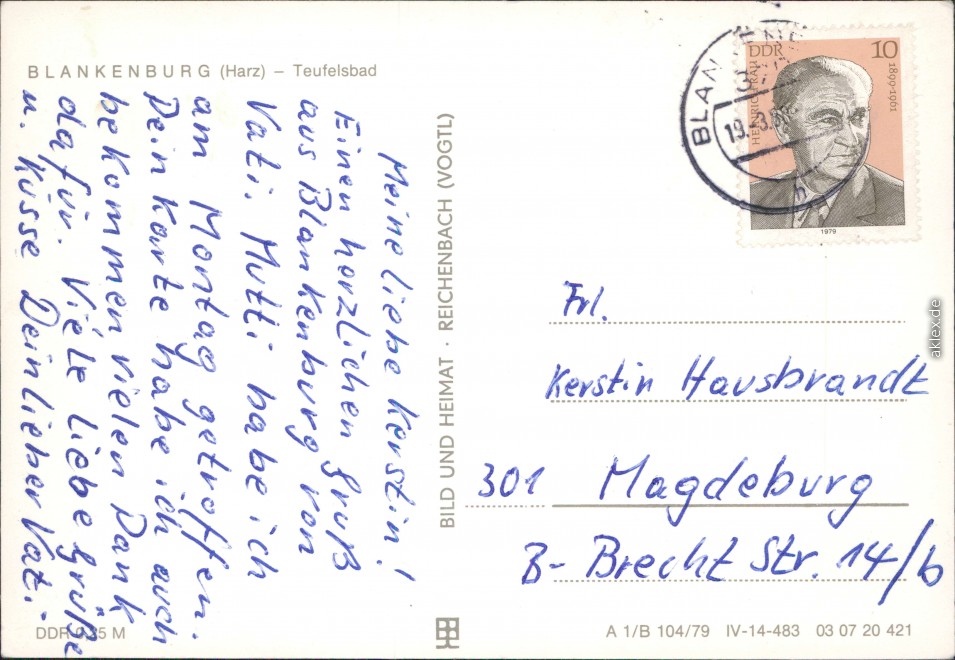 BLANKENBURG (Harz) – Teufelsbad
Meine liebe Kerstin!
Einen herzlichen Gruß
aus Blankenburg von
Vati. Mutti habe ich
am Montag getroffen.
Dein Karte habe ich auch
bekommen vielen Dank
dafür. Viele liebe Grüße
u. Küsse Dein lieber Vati.
DDR 0,25 M
BILD UND HEIMAT · REICHENBACH (VOGTL)
DDR
10
HEINRICH RAU
1899-1961
1979
19.-3.
Frl.
Kerstin Hausbrandt
301 Magdeburg
B-Brecht Str. 14/b
A 1/B 104/79 IV-14-483 03 07 20 421
aklex.de